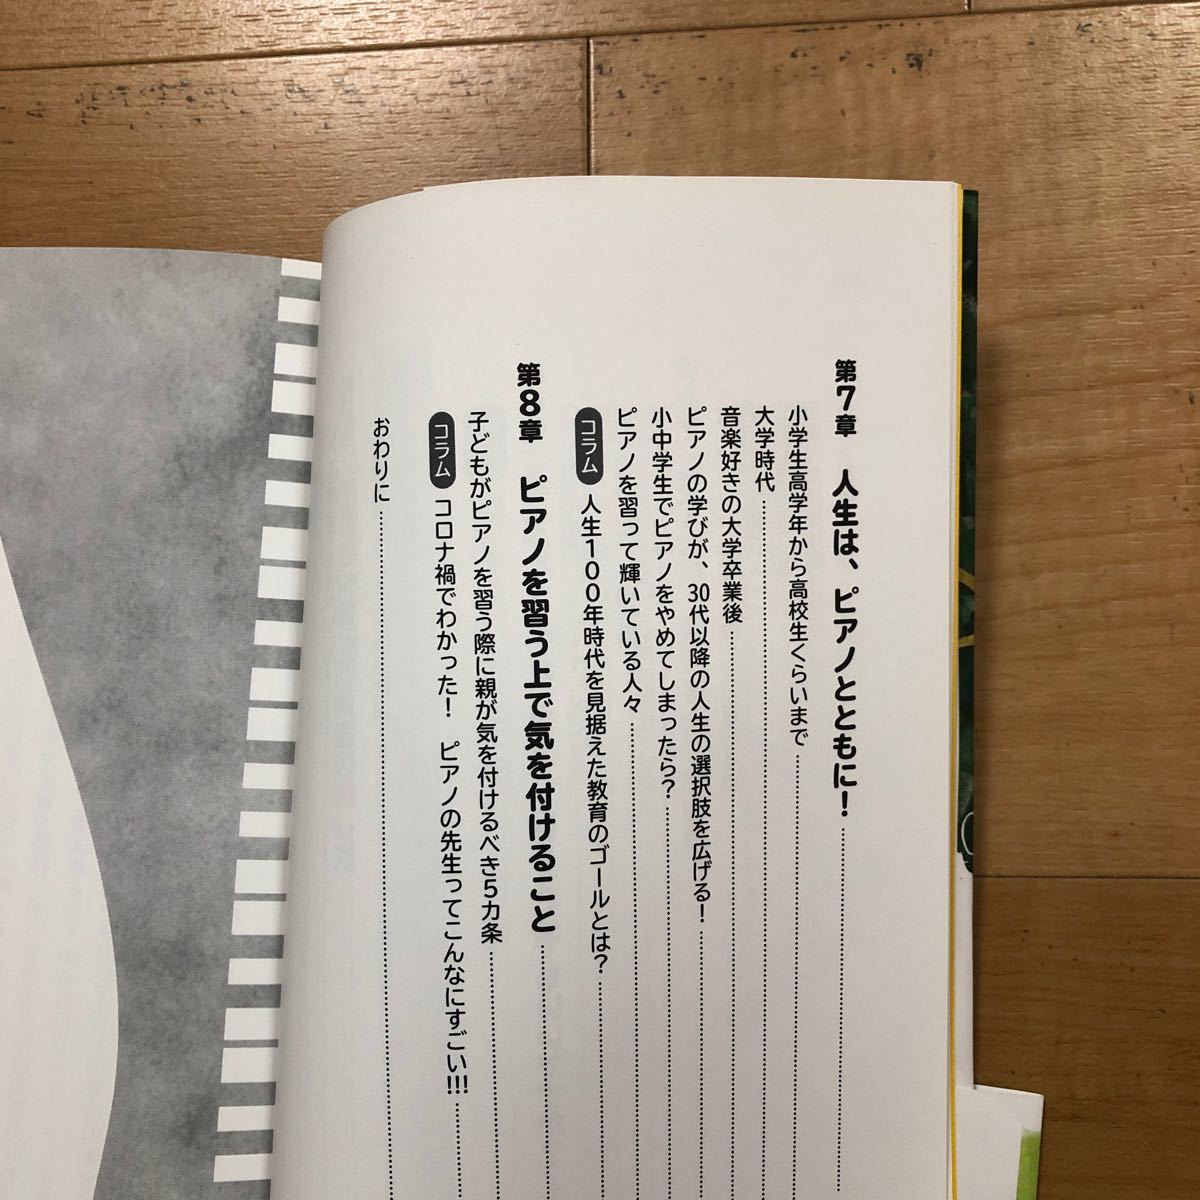 第7章　人生は、ピアノとともに！
小学生高学年から高校生くらいまで
大学時代
音楽好きの大学卒業後
ピアノの学びが、30代以降の人生の選択肢を広げる！
小中学生でピアノをやめてしまったら？
ピアノを習って輝いている人々
コラム　人生100年時代を見据えた教育のゴールとは？
第8章　ピアノを習う上で気を付けること
子どもがピアノを習う際に親が気を付けるべき5カ条
コラム　コロナ禍でわかった！　ピアノの先生ってこんなにすごい!!!
おわりに